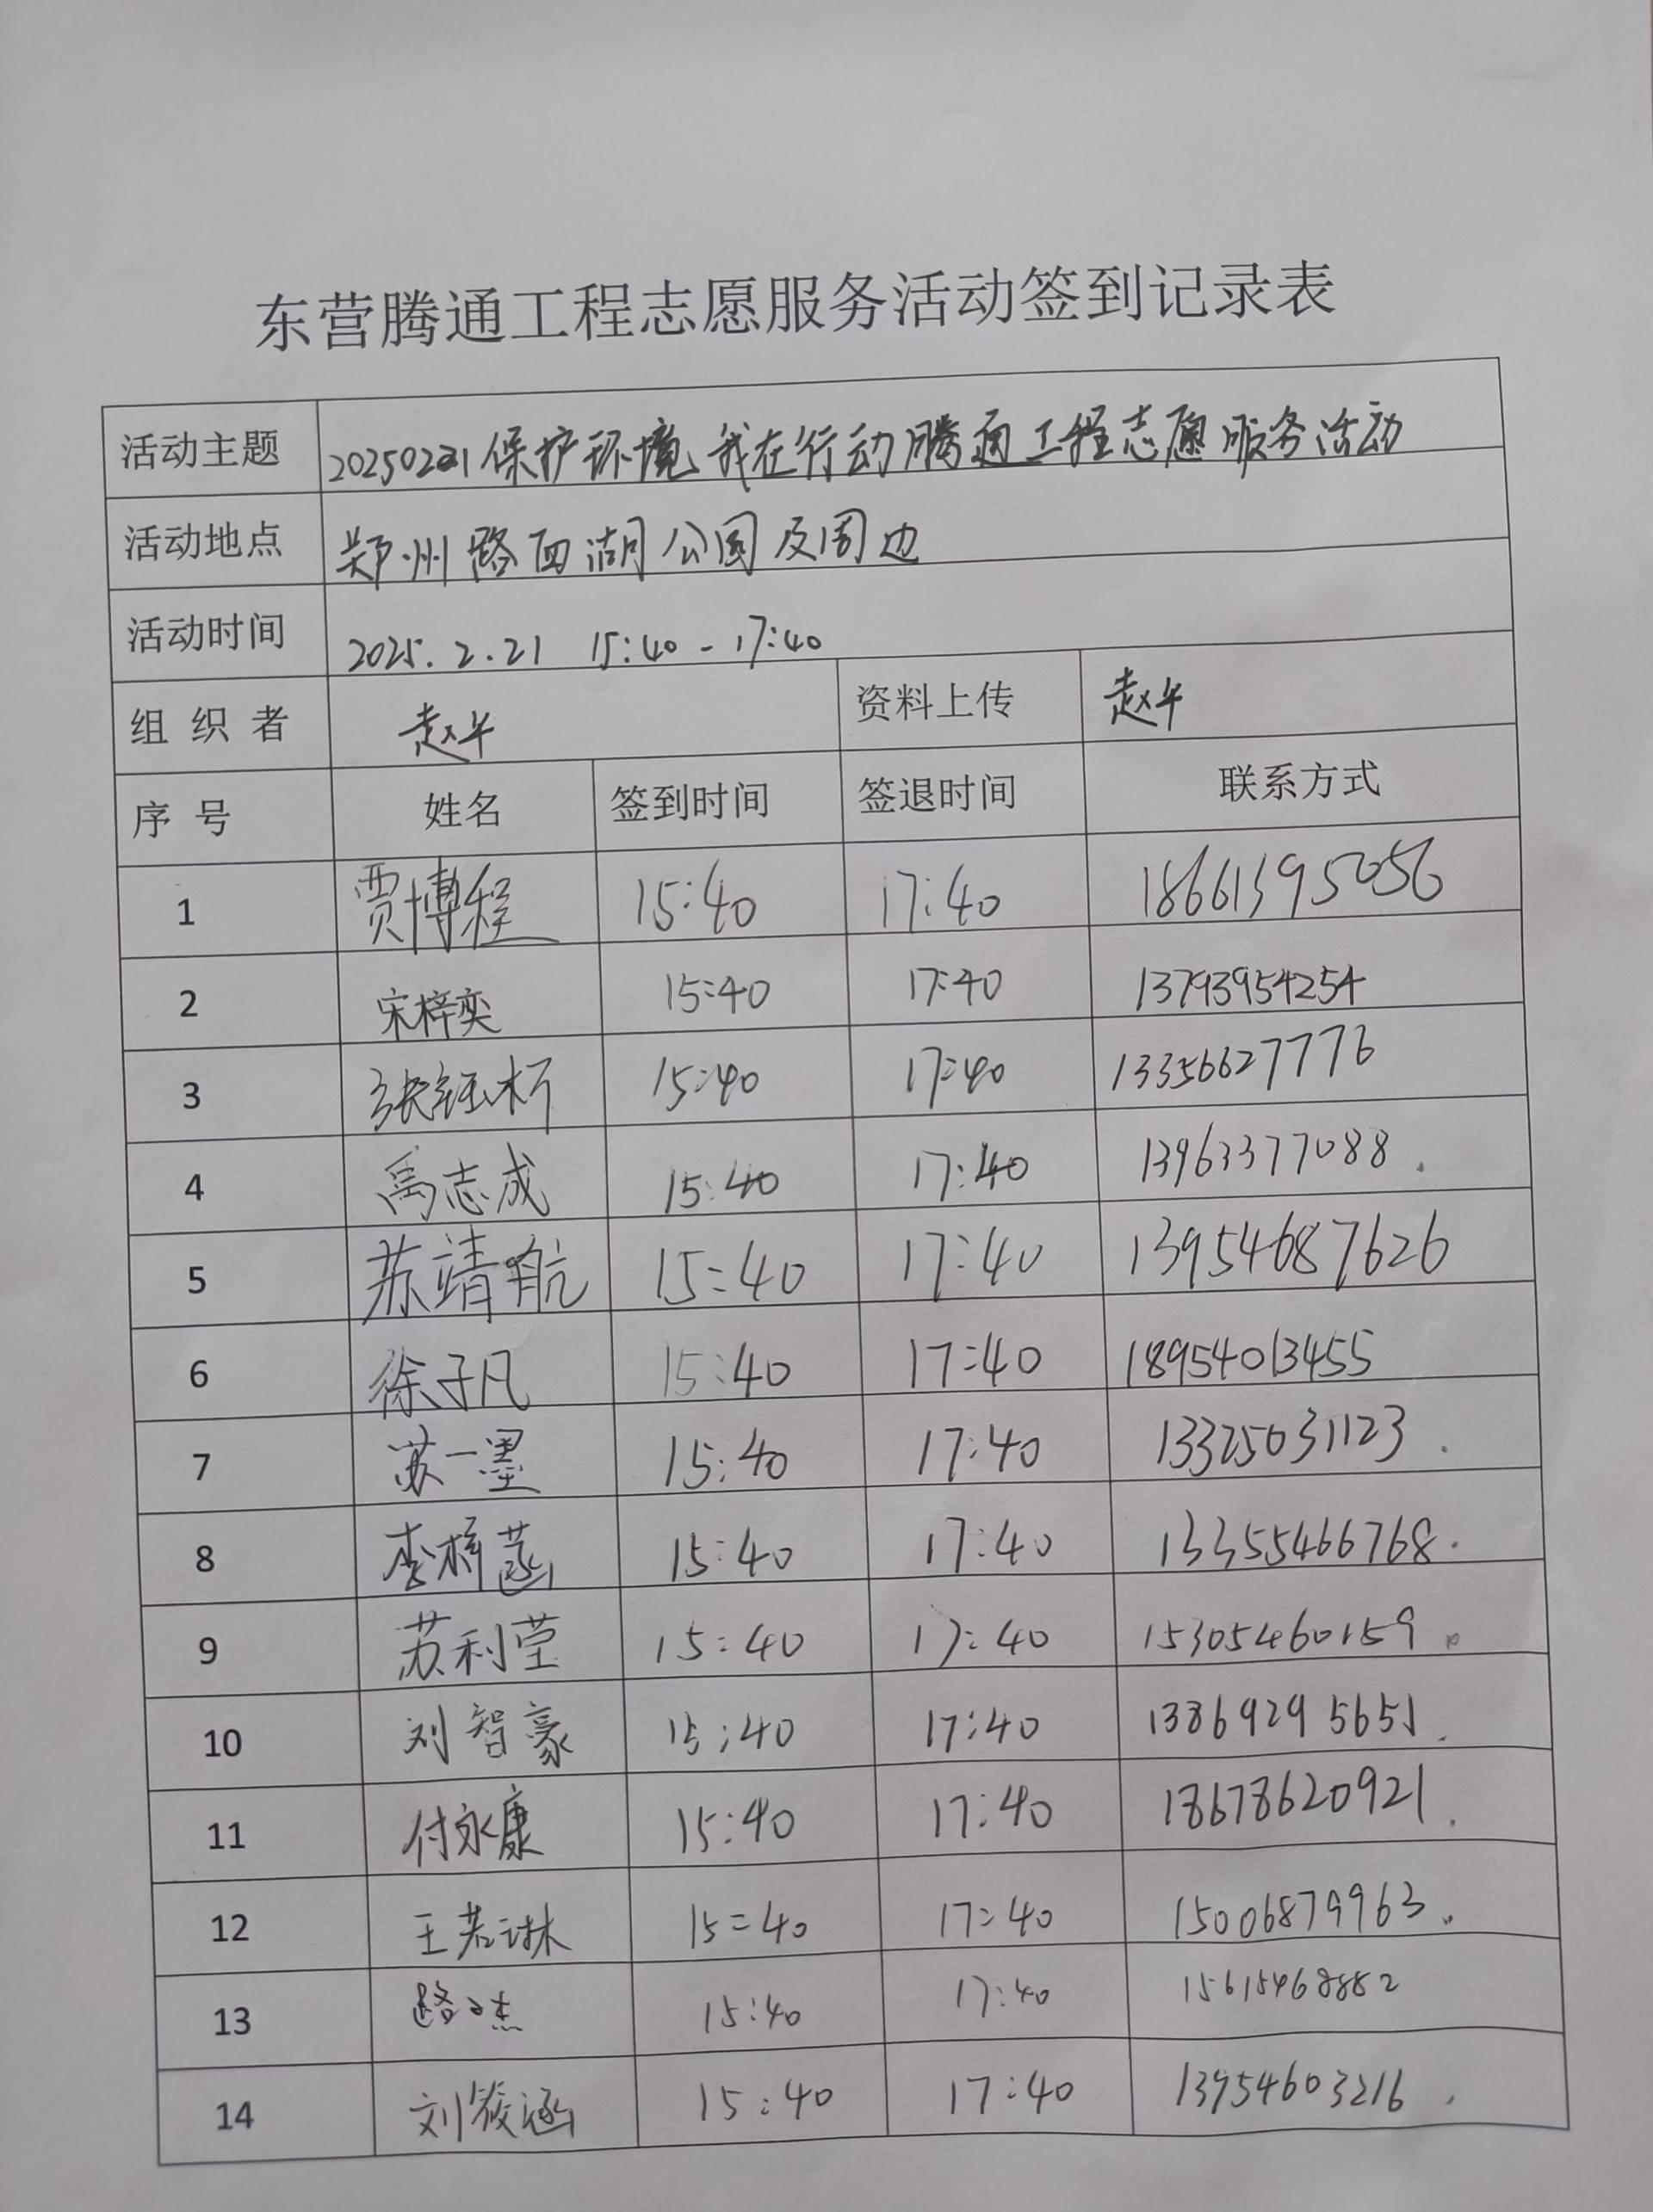 东营腾通工程志愿服务活动签到记录表
活动主题 20250221保护环境,我在行动腾通工程志愿服务活动
活动地点 郑州路西湖公园及周边
活动时间 2025.2.21 15:40-17:40
组织者 赵华 资料上传 赵华
序号 姓名 签到时间 签退时间 联系方式
1 贾博程 15:40 17:40 18661395056
2 宋梓奕 15:40 17:40 13793954254
3 张钰柯 15:40 17:40 13356627776
4 禹志成 15:40 17:40 13963377088
5 苏靖航 15:40 17:40 13954687626
6 徐子凡 15:40 17:40 18954013455
7 苏一墨 15:40 17:40 13325031123
8 李梓菡 15:40 17:40 13355466768
9 苏利莹 15:40 17:40 15305460159
10 刘智豪 15:40 17:40 13869295651
11 付永康 15:40 17:40 18678620921
12 王若琳 15:40 17:40 15006879963
13 15:40 17:40 15615468882
14 刘筱涵 15:40 17:40 13954603216